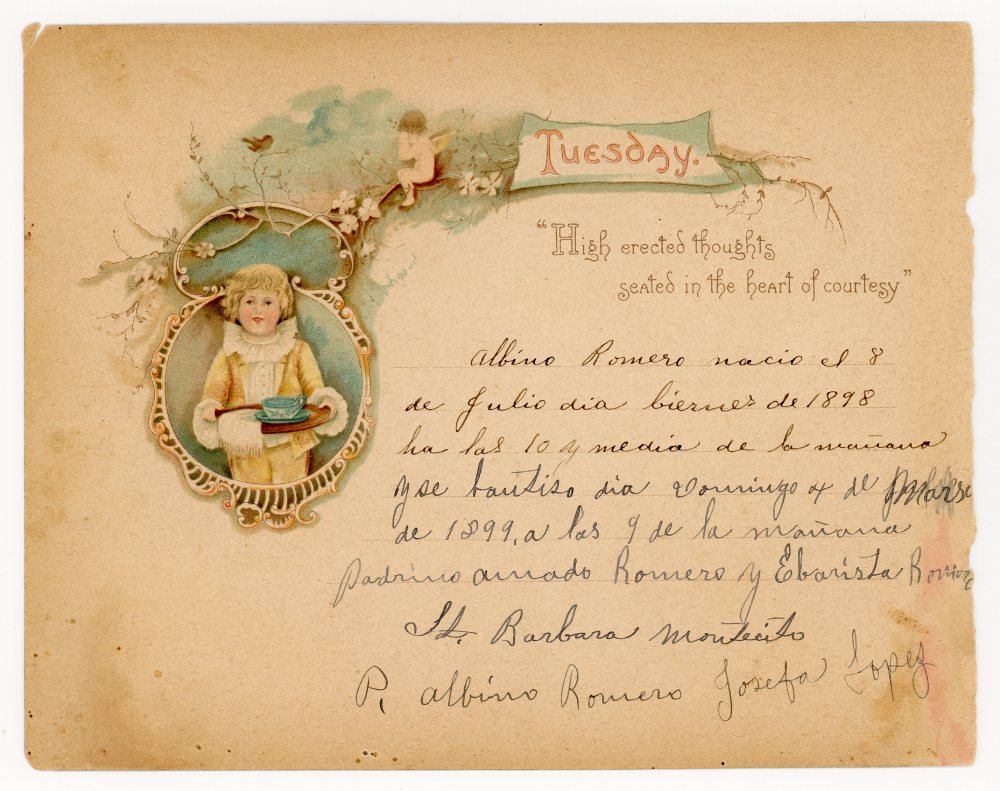 TUESDAY.
“High erected thoughts
seated in the heart of courtesy”
Albino Romero nacio el 8
de Julio dia biernes de 1898
ha las 10 y media de la mañana
y se bautiso dia Domingo 4 de Marso
de 1899, a las 9 de la mañana
Padrino amado Romero y Ebarista Romero
St. Barbara Montecito
P. Albino Romero Josefa Lopez